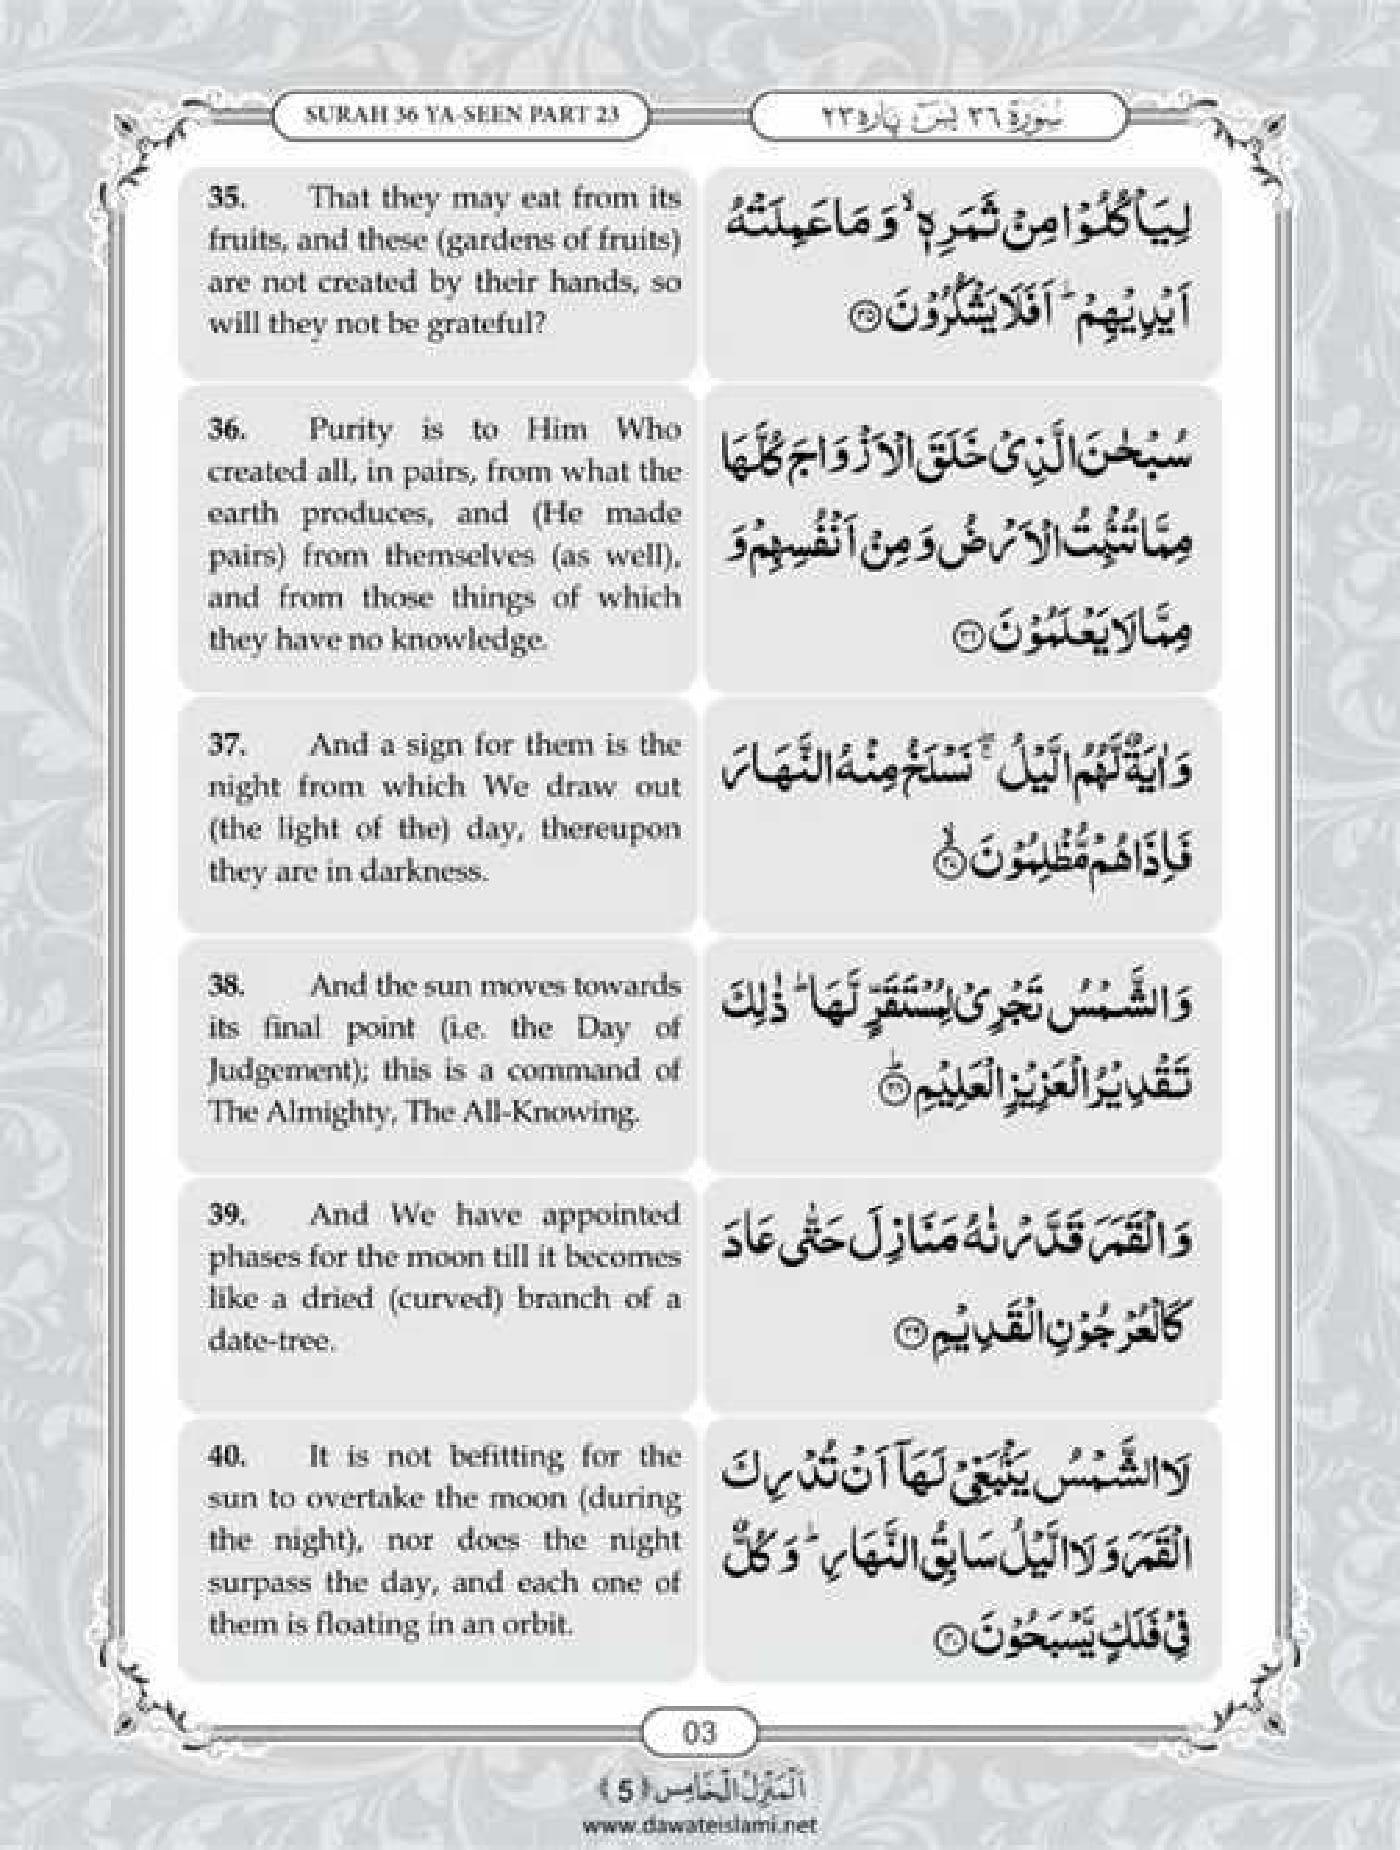 SURAH 36 YA-SEEN PART 23
سُوْرَۃ ٣٦ یٰسٓ پارہ ٢٣
35. That they may eat from its
fruits, and these (gardens of fruits)
are not created by their hands, so
will they not be grateful?
لِیَاْكُلُوْا مِنْ ثَمَرِهٖ ۙ وَ مَا عَمِلَتْهُ
اَیْدِیْهِمْ ؕ اَفَلَا یَشْكُرُوْنَ ﴿۳۵﴾
36. Purity is to Him Who
created all, in pairs, from what the
earth produces, and (He made
pairs) from themselves (as well),
and from those things of which
they have no knowledge.
سُبْحٰنَ الَّذِیْ خَلَقَ الْاَزْوَاجَ كُلَّهَا
مِمَّا تُنْۢبِتُ الْاَرْضُ وَ مِنْ اَنْفُسِهِمْ وَ
مِمَّا لَا یَعْلَمُوْنَ ﴿۳۶﴾
37. And a sign for them is the
night from which We draw out
(the light of the) day, thereupon
they are in darkness.
وَ اٰیَةٌ لَّهُمُ الَّیْلُ ۖۚ نَسْلَخُ مِنْهُ النَّهَارَ
فَاِذَا هُمْ مُّظْلِمُوْنَ ﴿ۙ۳۷﴾
38. And the sun moves towards
its final point (i.e. the Day of
Judgement); this is a command of
The Almighty, The All-Knowing.
وَ الشَّمْسُ تَجْرِیْ لِمُسْتَقَرٍّ لَّهَا ؕ ذٰلِكَ
تَقْدِیْرُ الْعَزِیْزِ الْعَلِیْمِ ﴿ؕ۳۸﴾
39. And We have appointed
phases for the moon till it becomes
like a dried (curved) branch of a
date-tree.
وَ الْقَمَرَ قَدَّرْنٰهُ مَنَازِلَ حَتّٰی عَادَ
كَالْعُرْجُوْنِ الْقَدِیْمِ ﴿۳۹﴾
40. It is not befitting for the
sun to overtake the moon (during
the night), nor does the night
surpass the day, and each one of
them is floating in an orbit.
لَا الشَّمْسُ یَنْۢبَغِیْ لَهَاۤ اَنْ تُدْرِكَ
الْقَمَرَ وَ لَا الَّیْلُ سَابِقُ النَّهَارِ ؕ وَ كُلٌّ
فِیْ فَلَكٍ یَّسْبَحُوْنَ ﴿۴۰﴾
03
اَلْمَنْزِلُ الْخَامِس ﴿5﴾
www.dawateislami.net